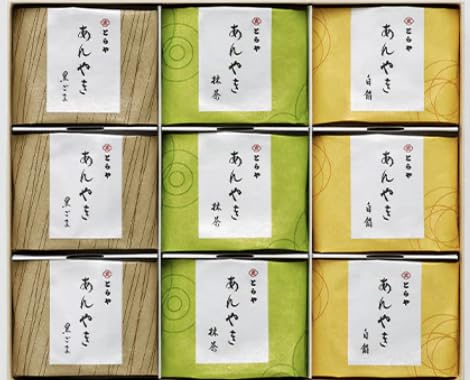 とらや
あんやき
黒ごま
とらや
あんやき
抹茶
とらや
あんやき
白餡
とらや
あんやき
黒ごま
とらや
あんやき
抹茶
とらや
あんやき
白餡
とらや
あんやき
黒ごま
とらや
あんやき
抹茶
とらや
あんやき
白餡